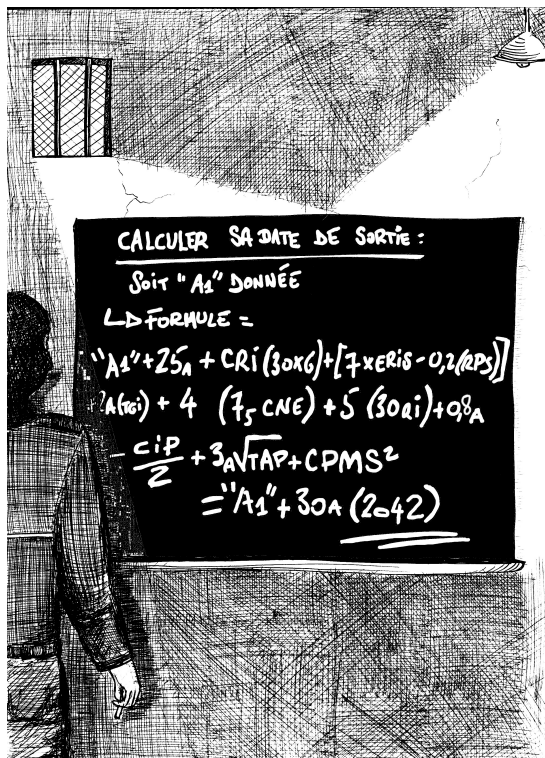 CALCULER SA DATE DE SORTIE :
SOIT "A1" DONNÉE
FORMULE =
"A1" + 25A + CRi (30x6) + [7xERiS - 0,2(RPS)]
2A(TGi) + 4 (75 CNE) + 5 (30Qi) + 0,8A
- CiP/2 + 3A√TAP + CPMS²
= "A1" + 30A (2042)